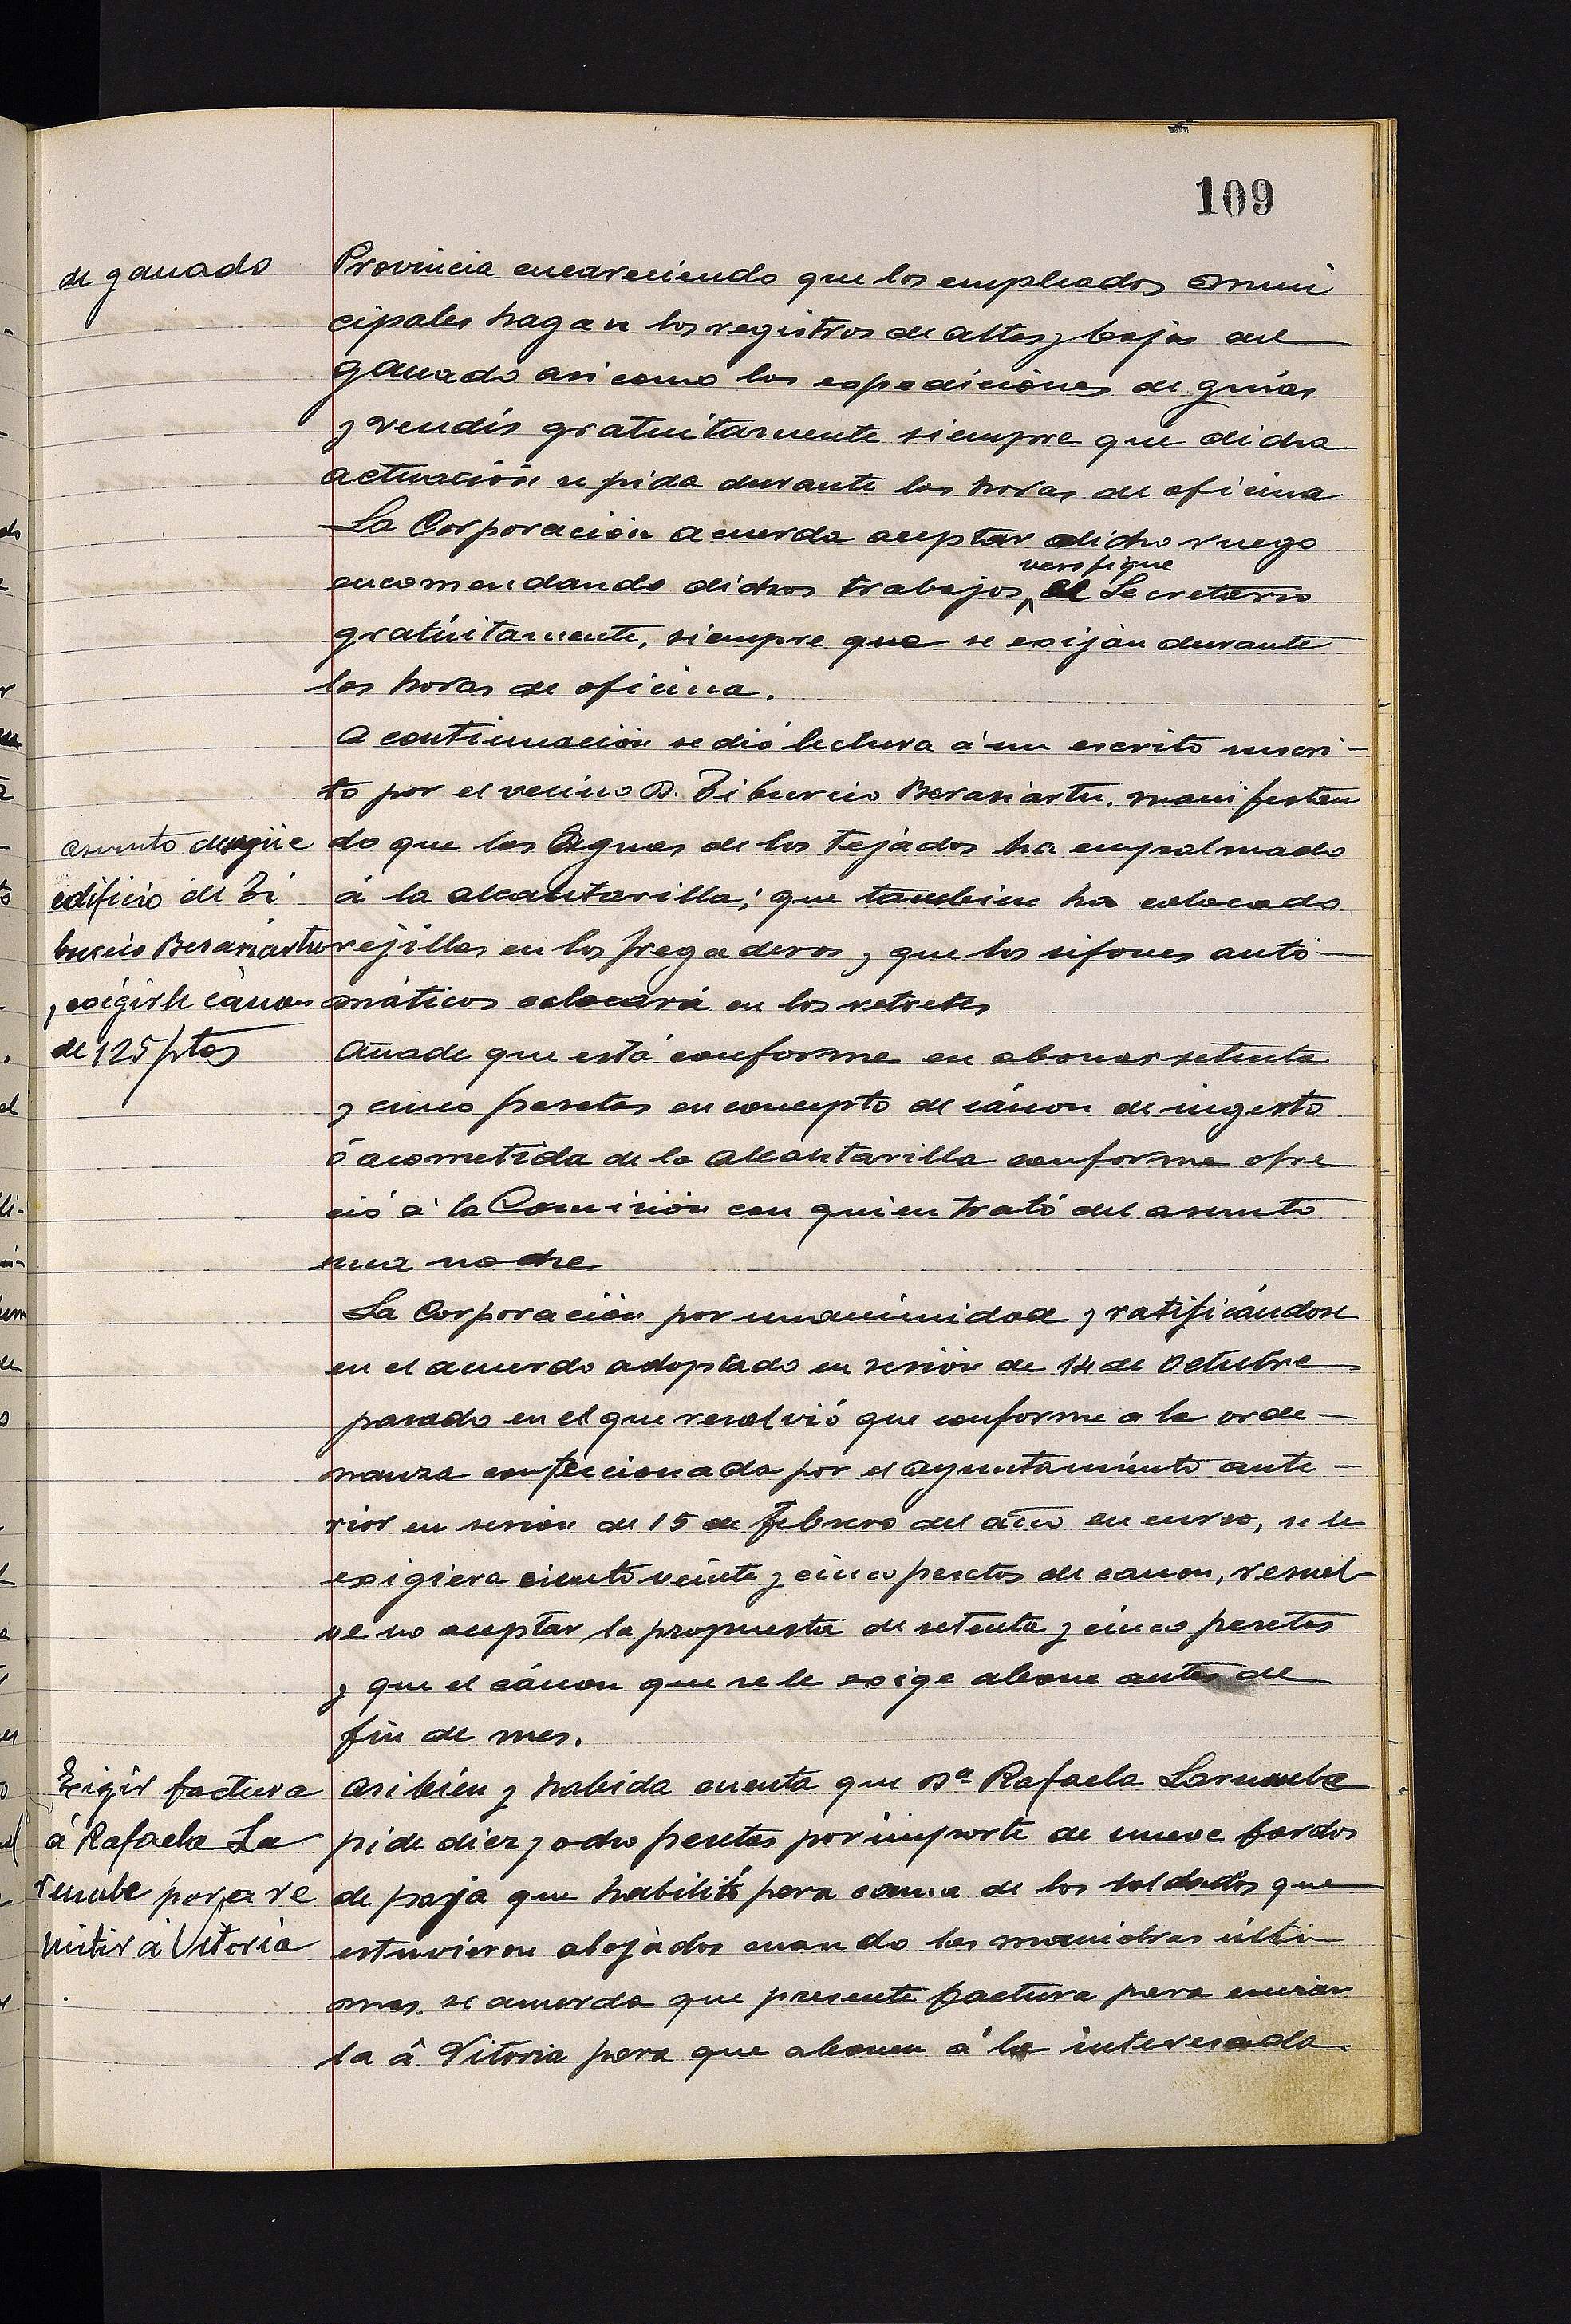 109
de ganado
Provincia encareciendo que los empleados muni
cipales hagan los registros de altas y bajas del
ganado asi como las expediciones de guias
y vendís gratuitamente siempre que dicha
actuación se pida durante las horas de oficina
La Corporación acuerda aceptar dicho ruego
verifique
encomendando dichos trabajos, el Secretario
gratuitamente, siempre que se exijan durante
las horas de oficina.
A continuación se dió lectura á un escrito suscri-
to por el vecino D. Tiburcio Berasiartu. manifestan
asunto desagüe
edificio de Ti
burcio Berasiartu
y exigirle cánon
de 125 ptas
do que las Aguas de los Tejados ha empalmado
á la alcantarilla; que tambien ha colocado
rejillas en los fregaderos y que los sifones auto-
máticos colocará en los retretes
Añade que está conforme en abonar setenta
y cinco pesetas en concepto de cánon de ingerto
ó acometida de la alcantarilla conforme ofre
ció á la Comisión con quien trató del asunto
una noche
La Corporación por unanimidad y ratificándose
en el acuerdo adoptado en sesión de 14 de Octubre
pasado en el que resolvió que conforme a la orde-
nanza confeccionada por el ayuntamiento ante-
rior en sesion de 15 de febrero del año en curso, se le
exigiera ciento veinte y cinco pesetas de canon, resuel-
ve no aceptar la propuesta de setenta y cinco pesetas
y que el cánon que se le exige abone antes de
fin de mes.
Exigir factura
á Rafaela La
rumbe para re
mitir á Vitoria
Asi bien y habida cuenta que Dª Rafaela Larumbe
pide diez y ocho pesetas por importe de nueve fardos
de paja que habilitó para cama de los soldados que
estuvieron alojados cuando las maniobras últi-
mas. se acuerda que presente factura para enviar
la á Vitoria para que abonen á la interesada.